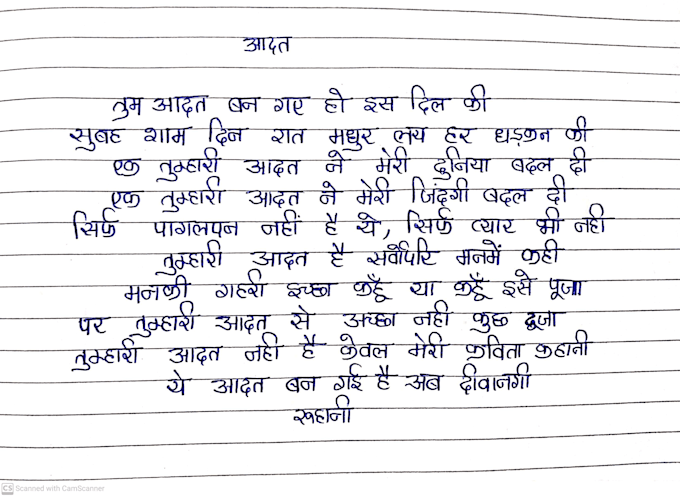 आदत
तुम आदत बन गए हो इस दिल की
सुबह शाम दिन रात मधुर लय हर धड़कन की
एक तुम्हारी आदत ने मेरी दुनिया बदल दी
एक तुम्हारी आदत ने मेरी जिंदगी बदल दी
सिर्फ पागलपन नहीं है ये, सिर्फ प्यार भी नही
तुम्हारी आदत है सर्वोपरि मनमें कही
मनकी गहरी इच्छा कहूँ या कहूँ इसे पूजा
पर तुम्हारी आदत से अच्छा नही कुछ दूजा
तुम्हारी आदत नही है केवल मेरी कविता कहानी
ये आदत बन गई है अब दीवानगी
रूहानी
CS Scanned with CamScanner